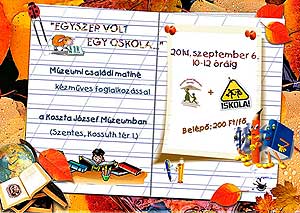 "EGYSZER VOLT
EGY OSKOLA..."
Múzeumi családi matiné
kézműves foglalkozással
a Koszta József Múzeumban
(Szentes, Kossuth tér 1.)
2014. szeptember 6.
10-12 óráig
+
ISKOLA!
Belépő: 200 Ft/fő